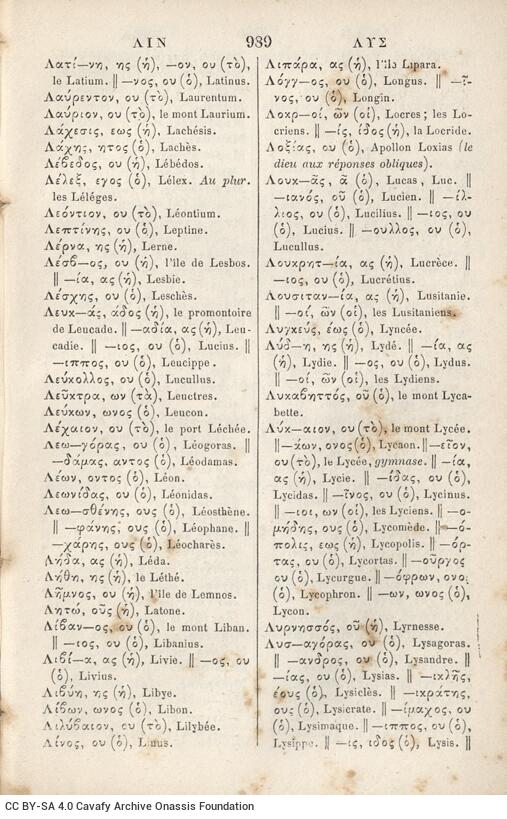 ΛΙΝ 989 ΛΥΣ
Λατί—νη, ης (ἡ), —ον, ου (τὸ),
le Latium. ‖ —νος, ου (ὁ), Latinus.
Λαύρεντον, ου (τὸ), Laurentum.
Λαύριον, ου (τὸ), le mont Laurium.
Λάχεσις, εως (ἡ), Lachésis.
Λάχης, ητος (ὁ), Lachès.
Λέβεδος, ου (ἡ), Lébédos.
Λέλεξ, εγος (ὁ), Lélex. Au plur.
les Léléges.
Λεόντιον, ου (τὸ), Léontium.
Λεπτίνης, ου (ὁ), Leptine.
Λέρνα, ης (ἡ), Lerne.
Λέσβ—ος, ου (ἡ), l'île de Lesbos.
‖ —ία, ας (ἡ), Lesbie.
Λέσχης, ου (ὁ), Leschès.
Λευκ—άς, άδος (ἡ), le promontoire
de Leucade. ‖ —αδία, ας (ἡ), Leu-
cadie. ‖ —ιος, ου (ὁ), Lucius. ‖
—ιππος, ου (ὁ), Leucippe.
Λεύκολλος, ου (ὁ), Lucullus.
Λεῦκτρα, ων (τὰ), Leuctres.
Λεύκων, ωνος (ὁ), Leucon.
Λέχαιον, ου (τὸ), le port Léchée.
Λεω—γόρας, ου (ὁ), Léogoras. ‖
—δάμας, αντος (ὁ), Léodamas.
Λέων, οντος (ὁ), Léon.
Λεωνίδας, ου (ὁ), Léonidas.
Λεω—σθένης, ους (ὁ), Léosthène.
‖ —φάνης, ους (ὁ), Léophane. ‖
—χάρης, ους (ὁ), Léocharès.
Λήδα, ας (ἡ), Léda.
Λήθη, ης (ἡ), le Léthé.
Λῆμνος, ου (ἡ), l'île de Lemnos.
Λητώ, οῦς (ἡ), Latone.
Λίβαν—ος, ου (ὁ), le mont Liban.
‖ —ιος, ου (ὁ), Libanius.
Λιβί—α, ας (ἡ), Livie. ‖ —ος, ου
(ὁ), Livius.
Λιβύη, ης (ἡ), Libye.
Λίβων, ωνος (ὁ), Libon.
Λιλύβαιον, ου (τὸ), Lilybée.
Λίνος, ου (ὁ), Linus.
Λιπάρα, ας (ἡ), l'île Lipara.
Λόγγ—ος, ου (ὁ), Longus. ‖ —ῖ-
νος, ου (ὁ), Longin.
Λοκρ—οί, ῶν (οἱ), Locres ; les Lo-
criens. ‖ —ίς, ίδος (ἡ), la Locride.
Λοξίας, ου (ὁ), Apollon Loxias (le
dieu aux réponses obliques).
Λουκ—ᾶς, ᾶ (ὁ), Lucas, Luc. ‖
—ιανός, οῦ (ὁ), Lucien. ‖ —ίλ-
λιος, ου (ὁ), Lucilius. ‖ —ιος, ου
(ὁ), Lucius. ‖ —ουλλος, ου (ὁ),
Lucullus.
Λουκρητ—ία, ας (ἡ), Lucrèce. ‖
—ιος, ου (ὁ), Lucrétius.
Λουσιταν—ία, ας (ἡ), Lusitanie.
‖ —οί, ῶν (οἱ), les Lusitaniens.
Λυγκεύς, έως (ὁ), Lyncée.
Λύδ—η, ης (ἡ), Lydé. ‖ —ία, ας
(ἡ), Lydie. ‖ —ος, ου (ὁ), Lydus.
‖ —οί, ῶν (οἱ), les Lydiens.
Λυκαβηττός, οῦ (ὁ), le mont Lyca-
bette.
Λύκ—αιον, ου (τὸ), le mont Lycée.
‖ —άων, ονος (ὁ), Lycaon. ‖ —εῖον,
ου (τὸ), le Lycée, gymnase. ‖ —ία,
ας (ἡ), Lycie. ‖ —ίδας, ου (ὁ),
Lycidas. ‖ —ῖνος, ου (ὁ), Lycinus.
‖ —ιοι, ων (οἱ), les Lyciens. ‖ —ο-
μήδης, ους (ὁ), Lycomède. ‖ —ό-
πολις, εως (ἡ), Lycopolis. ‖ —όρ-
τας, ου (ὁ), Lycortas. ‖ —οῦργος
ου (ὁ), Lycurgue. ‖ —όφρων, ονο.
(ὁ), Lycophron. ‖ —ων, ωνος (ὁ),
Lycon.
Λυρνησσός, οῦ (ἡ), Lyrnesse.
Λυσ—αγόρας, ου (ὁ), Lysagoras.
‖ —ανδρος, ου (ὁ), Lysandre. ‖
—ίας, ου (ὁ), Lysias. ‖ —ικλῆς,
έους (ὁ), Lysiclès. ‖ —ικράτης,
ους (ὁ), Lysicrate. ‖ —ίμαχος, ου
(ὁ), Lysimaque. ‖ —ιππος, ου (ὁ),
Lysippe. ‖ —ις, ιδος (ὁ), Lysis. ‖
CC BY-SA 4.0 Cavafy Archive Onassis Foundation